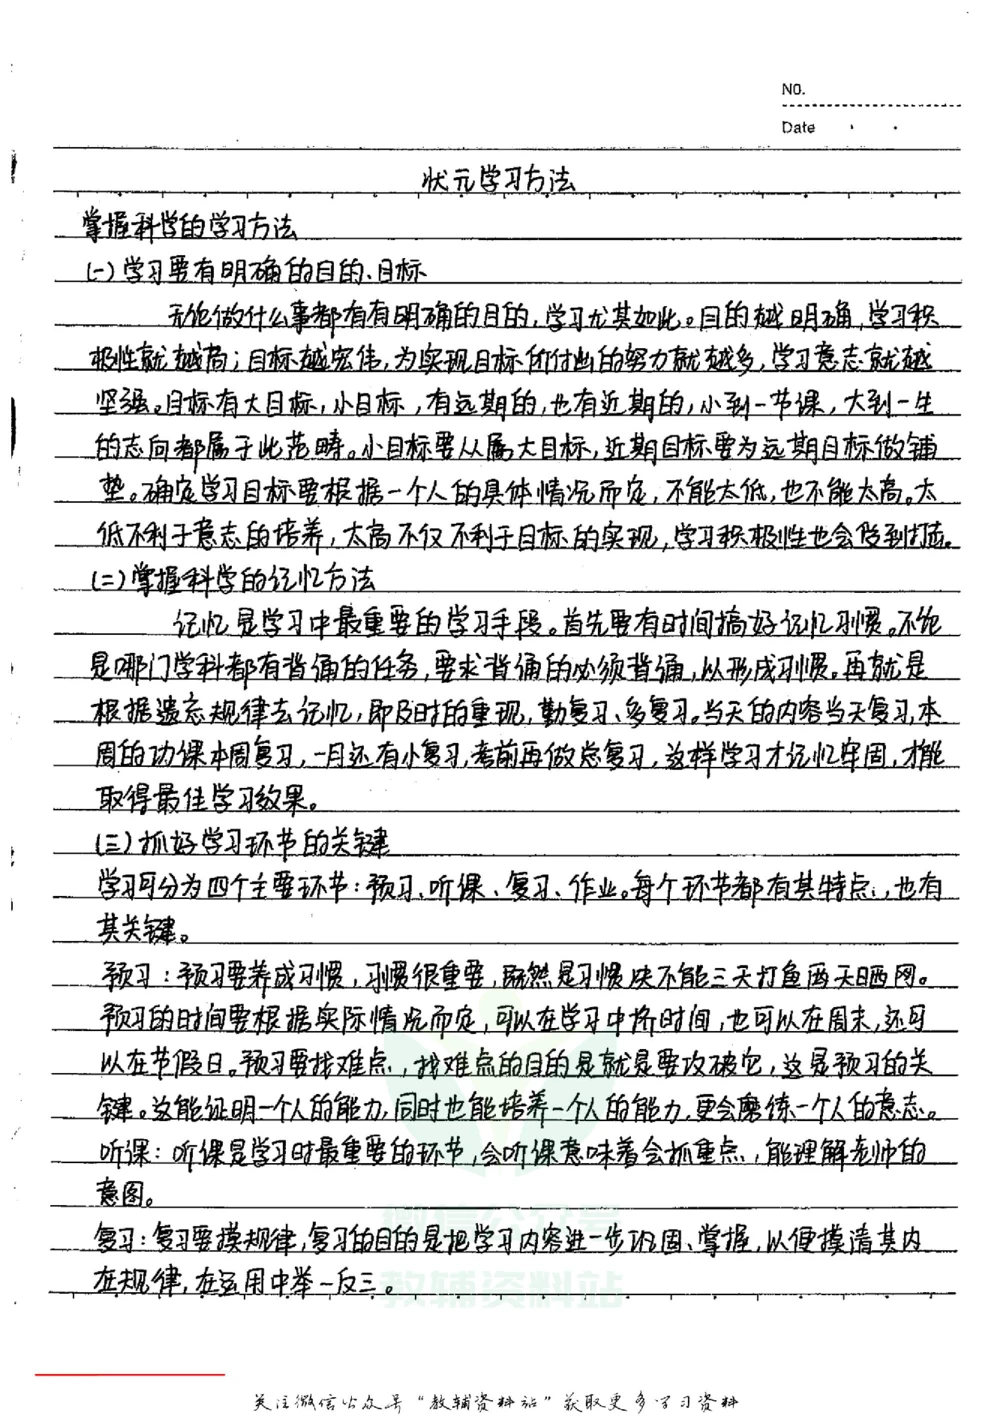 NO.
Date
状元学习方法
掌握科学的学习方法
(一)学习要有明确的目的、目标
无论做什么事都有有明确的目的,学习尤其如此。目的越明确,学习积
极性就越高;目标越宏伟,为实现目标所付出的努力就越多,学习意志就越
坚强。目标有大目标,小目标,有远期的,也有近期的,小到一节课,大到一生
的志向都属于此范畴。小目标要从属大目标,近期目标要为远期目标做铺
垫。确定学习目标要根据一个人的具体情况而定,不能太低,也不能太高。太
低不利于意志的培养,太高不仅不利于目标的实现,学习积极性也会受到打击。
(二)掌握科学的记忆方法
记忆是学习中最重要的学习手段。首先要有时间搞好记忆习惯。不论
是哪门学科都有背诵的任务,要求背诵的必须背诵,以形成习惯。再就是
根据遗忘规律去记忆,即及时的重现,勤复习、多复习。当天的内容当天复习,本
周的功课本周复习,一月还有小复习,考前再做总复习,这样学习才记忆牢固,才能
取得最佳学习效果。
(三)抓好学习环节的关键
学习可分为四个主要环节:预习、听课、复习、作业。每个环节都有其特点,也有
其关键。
预习:预习要养成习惯,习惯很重要,既然是习惯决不能三天打鱼两天晒网。
预习的时间要根据实际情况而定,可以在学习中挤时间,也可以在周末,还可
以在节假日。预习要找难点,找难点的目的是就是要攻破它,这是预习的关
键。这能证明一个人的能力,同时也能培养一个人的能力,更会磨练一个人的意志。
听课:听课是学习时最重要的环节,会听课意味着会抓重点,能理解老师的
意图。
复习:复习要摸规律,复习的目的是把学习内容进一步巩固、掌握,以便摸清其内
在规律,在运用中举一反三。
微信公众号
教辅资料站
关注微信公众号“教辅资料站”获取更多学习资料